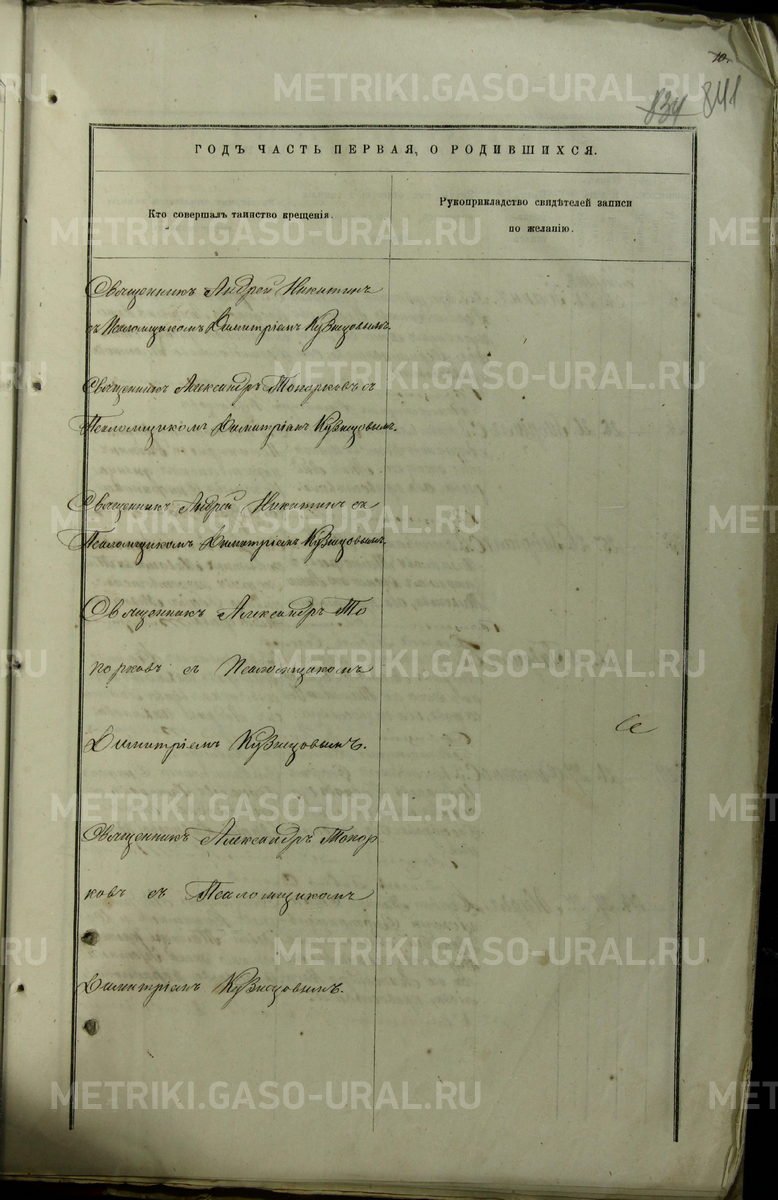 10.
834 841
ГОДЪ ЧАСТЬ ПЕРВАЯ, О РОДИВШИХСЯ.
Кто совершалъ таинство крещенія.
Рукоприкладство свидѣтелей записи
по желанію.
Священникъ Андрей Никитинъ
съ Псаломщикомъ Димитріемъ Кузнецовымъ.
Священникъ Александръ Топорковъ съ
Псаломщикомъ Димитріемъ Кузнецовымъ.
Священникъ Андрей Никитинъ съ
Псаломщикомъ Димитріемъ Кузнецовымъ.
Священникъ Александръ То
порковъ съ Псаломщикомъ
Димитріемъ Кузнецовымъ.
Священникъ Александръ Топор
ковъ съ Псаломщикомъ
Димитріемъ Кузнецовымъ.
METRIKI.GASO-URAL.RU